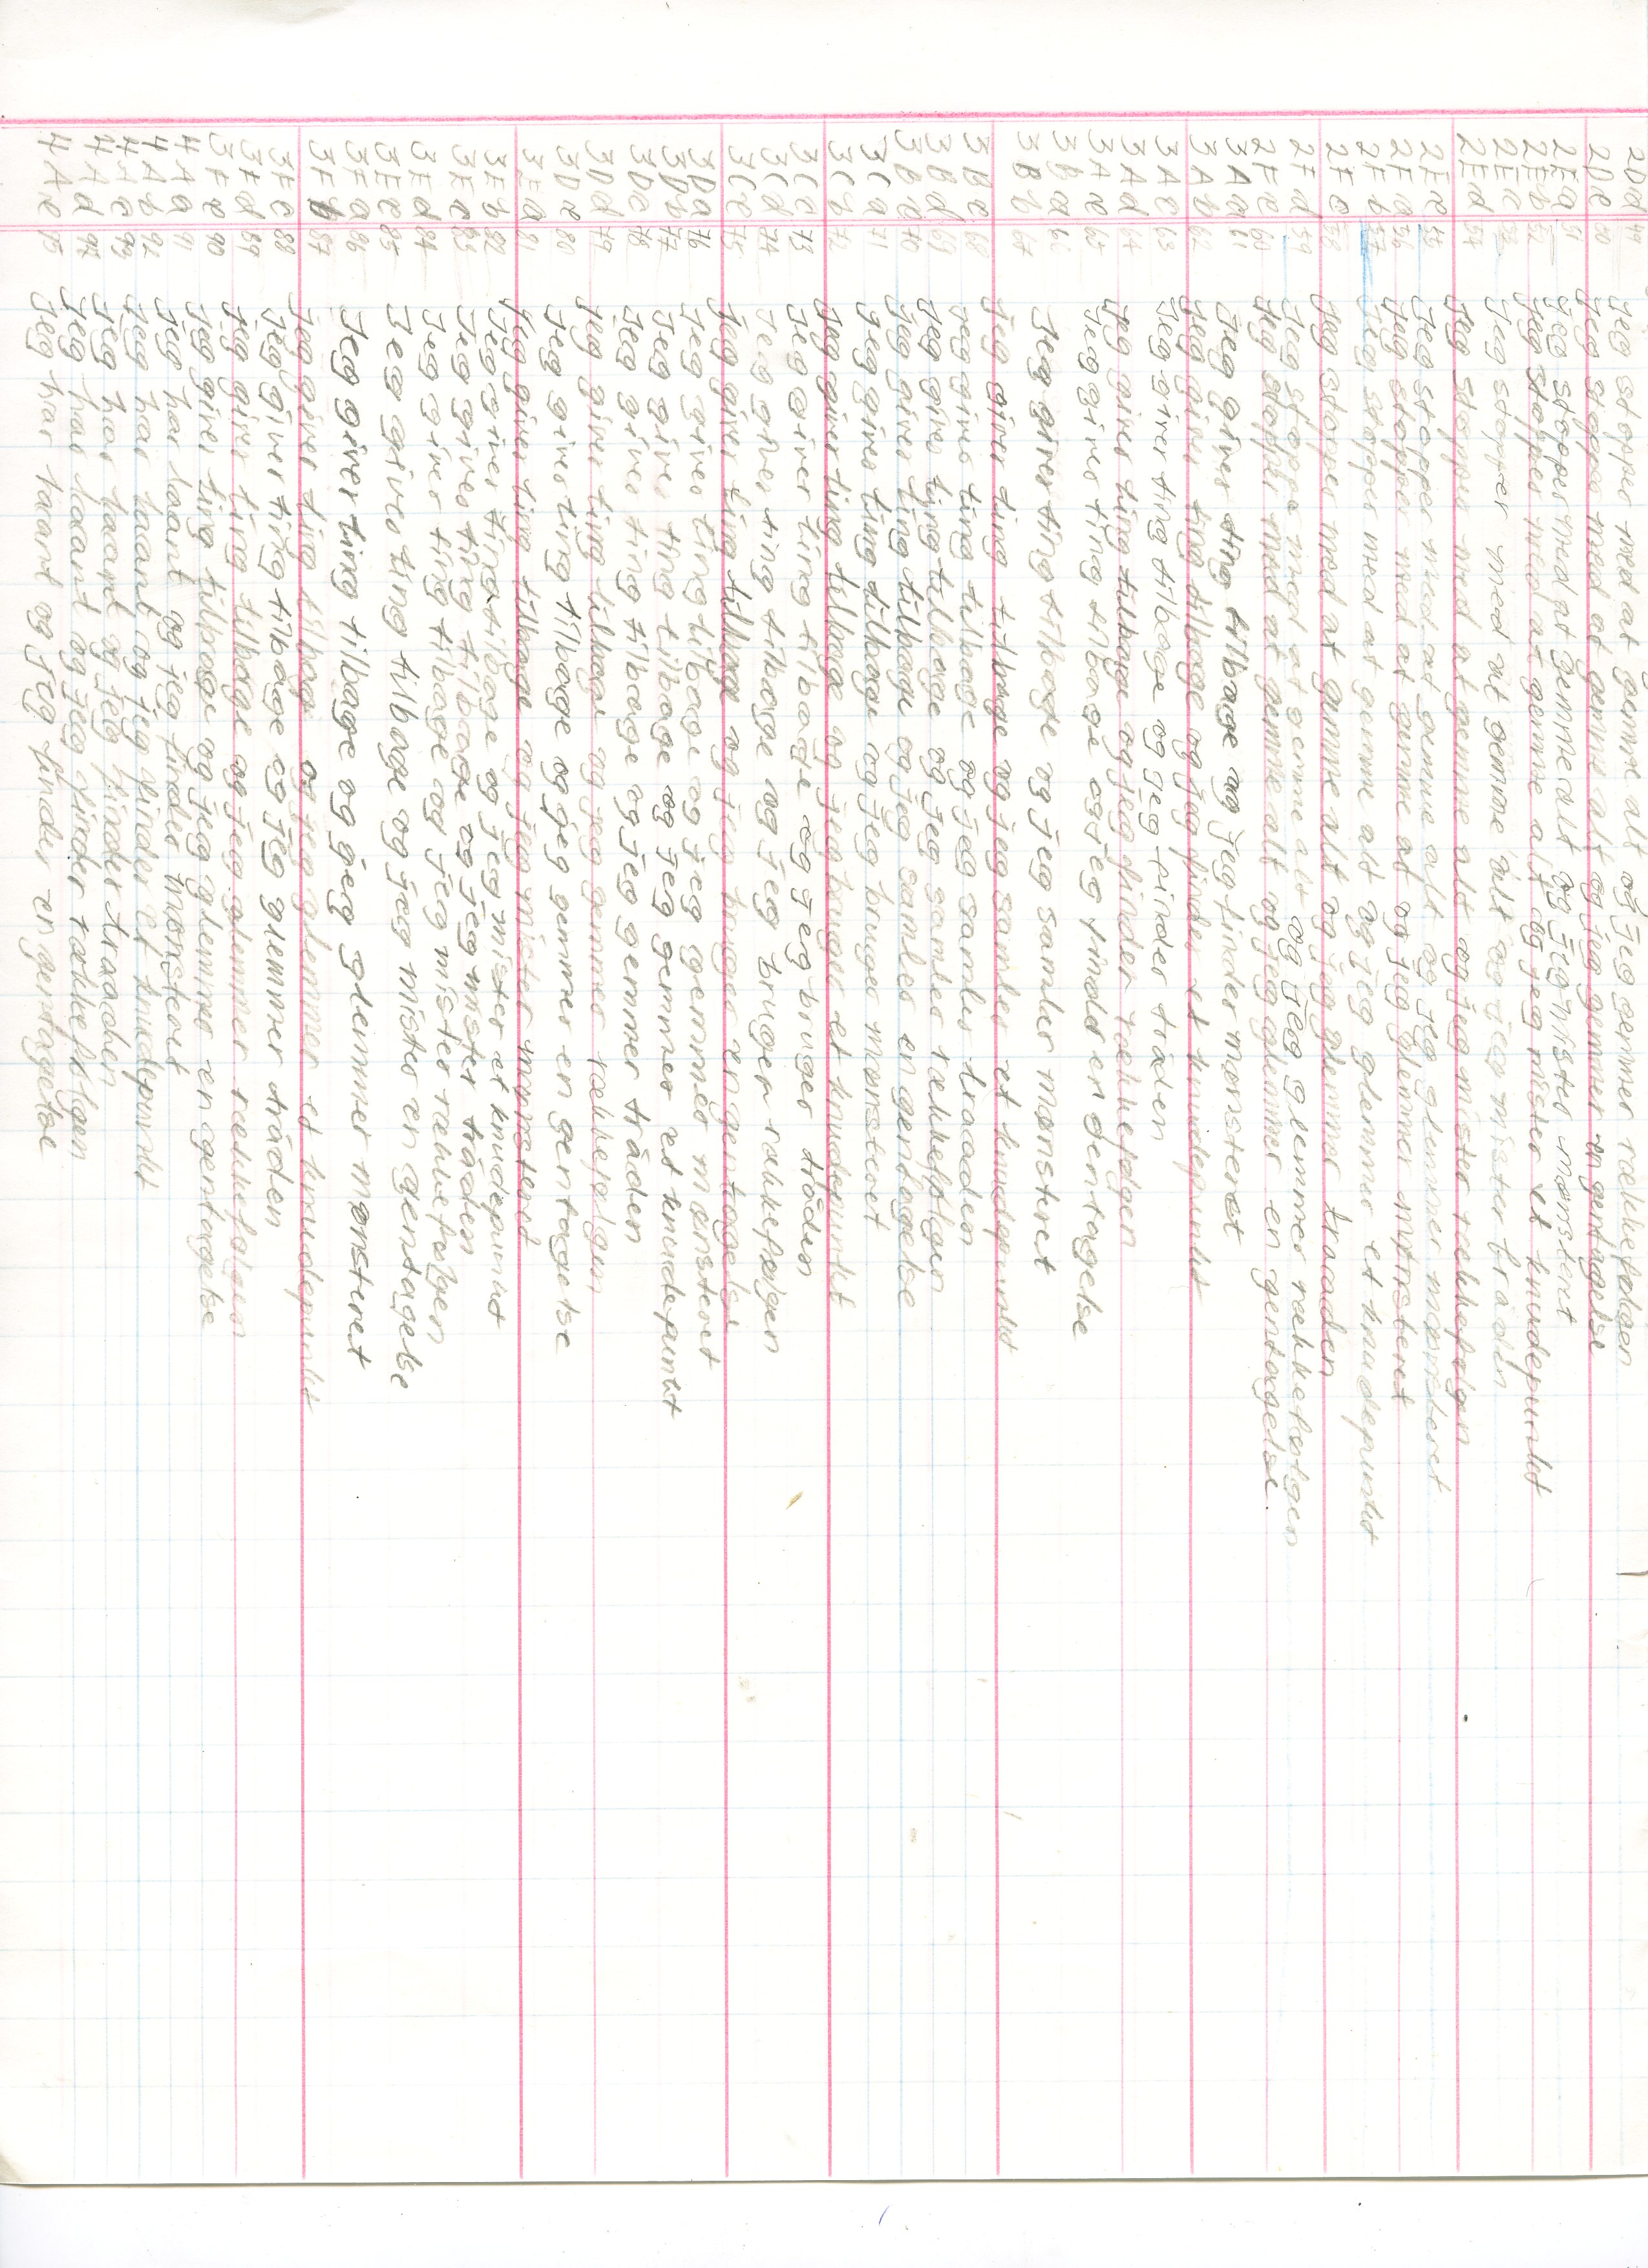 2Dd 49 jeg stopper med at gemme alt og jeg gemmer rækkefølgen
2De 50 jeg stopper med at gemme alt og jeg gemmer en gentagelse
2Ea 51 jeg stopper med at gemme alt og jeg mister mønsteret
2Eb 52 jeg stopper med at gemme alt og jeg mister et knudepunkt
2Ec 53 Jeg stopper med at gemme alt og jeg mister tråden
2Ed 54 jeg stopper med at gemme alt og jeg mister rækkefølgen
2Ee 55 Jeg stopper med at gemme alt og jeg glemmer mønsteret
2Fa 56 jeg stopper med at gemme at og jeg glemmer mønsteret
2Fb 57 Jeg stopper med at gemme alt og jeg glemmer et knudepunkt
2Fc 58 jeg stopper med at gemme alt og jeg glemmer traaden
2Fd 59 Jeg stoppe med at gemme alt og jeg glemmer rækkefølgen
2Fe 60 Jeg stopper med at gemme alt og jeg glemmer en gentagelse.
3Aa 61 jeg giver ting tilbage og jeg finder mønsteret
3Ab 62 jeg giver ting tilbage og jeg finder et knudepunkt
3Ac 63 Jeg giver ting tilbage og jeg finder tråden
3Ad 64 jeg giver ting tilbage og jeg finder rækkefølgen
3Ae 65 Jeg giver ting tilbage og jeg finder en gentagelse
3Ba 66 Jeg giver ting tilbage og jeg samler mønsteret
3Bb 67 jeg giver ting tilbage og jeg samler et knudepunkt
3Bc 68 jeg giver ting tilbage og jeg samler traaden
3Bd 69 jeg giver ting tilbage og jeg samler rækkefølgen
3Be 70 jeg giver ting tilbage og jeg samler en gentagelse
3Ca 71 jeg giver ting tilbage og jeg bruger mønsteret
3Cb 72 jeg giver ting tilbage og jeg bruger et knudepunkt
3Cc 73 Jeg giver ting tilbage og jeg bruger tråden
3Cd 74 Jeg giver ting tilbage og jeg bruger rækkefølgen
3Ce 75 jeg giver ting tilbage og jeg bruger en gentagelse
3Da 76 jeg giver ting tilbage og jeg gemmer mønsteret
3Db 77 Jeg giver ting tilbage og jeg gemmer et knudepunkt
3Dc 78 Jeg giver ting tilbage og jeg gemmer tråden
3Dd 79 jeg giver ting tilbage og jeg gemmer rækkefølgen
3De 80 Jeg giver ting tilbage og jeg gemmer en gentagelse
3Ea 81 jeg giver ting tilbage og jeg mister mønsteret
3Eb 82 Jeg giver ting tilbage og jeg mister et knudepunkt
3Ec 83 Jeg giver ting tilbage og jeg mister tråden
3Ed 84 Jeg giver ting tilbage og jeg mister rækkefølgen
3Ee 85 Jeg giver ting tilbage og jeg mister en gentagelse
3Fa 86 Jeg giver ting tilbage og jeg glemmer mønsteret
3Fb 87 jeg giver ting tilbage og jeg glemmer et knudepunkt
3Fc 88 Jeg giver ting tilbage og jeg glemmer tråden
3Fd 89 jeg giver ting tilbage og jeg glemmer rækkefølgen
3Fe 90 jeg giver ting tilbage og jeg glemmer en gentagelse
4Aa 91 jeg har laant og jeg finder mønsteret
4Ab 92 jeg har laant og jeg finder et knudepunkt
4Ac 93 jeg har laant og jeg finder traaden
4Ad 94 jeg har laant og jeg finder rækkefølgen
4Ae 95 Jeg har laant og jeg finder en gentagelse